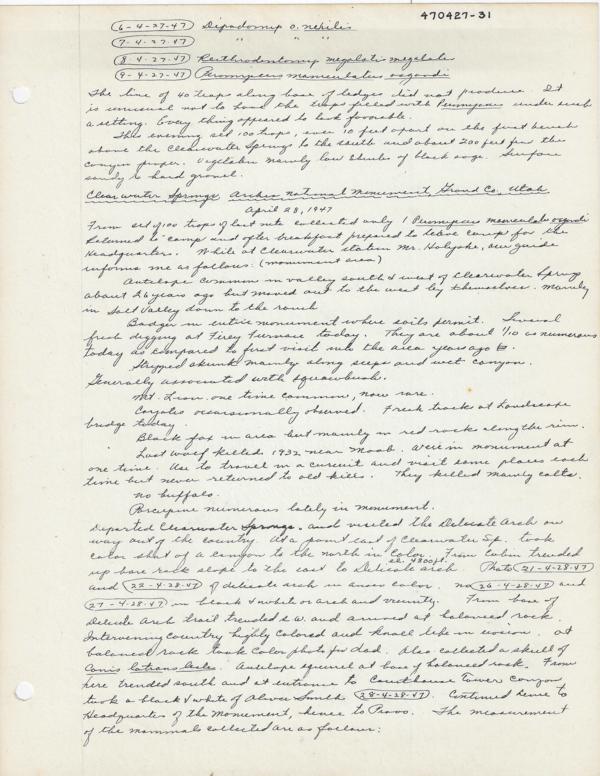 470427-31
6-4-27-47 Dipodomys o. nexilis
7-4-27-47 " "
8-4-27-47 Reithrodontomys megalotis megalotis
9-4-27-47 Peromyscus maniculatus osgoodi
The line of 40 traps along base of ledges did not produce. It
is unusual not to have the traps filled with Peromyscus under such
a setting. Every thing appeared to look favorable.
This evening set 100 traps, over 10 feet apart on the first bench
above the Clearwater Springs to the south and about 200 feet from the
canyon proper. Vegetation mainly low shrubs of black sage. Surface
sandy to hard gravel.
Clearwater Springs Arches National Monument, Grand Co., Utah
April 28, 1947
From set of 100 traps of last nite collected only 1 Peromyscus maniculatus osgoodi
Returned to camp and after breakfast prepared to leave camp for the
Headquarters. While at Clearwater station Mr. Holyoke, our guide
informs me as follows: (monument area)
Antelope common in valley south & west of Clearwater Springs
about 26 years ago but moved out to the west by themselves. Mainly
in Salt Valley down to the ranch
Badger in entire monument where soils permit. Several
fresh digging at Firey Furnace today. They are about 1/10 as numerous
today as compared to first visit into the area years ago.
Stripped skunk mainly along seeps and wet canyon.
Generally associated with squawbush.
Mt. Lion. one time common, now rare.
Coyotes occassionally observed. Fresh track at Landscape
bridge today.
Black fox in area but mainly in red rock along the rim.
Last wolf killed 1932 near Moab. Were in monument at
one time. Use to travel in a curcuit and visit some places each
time but never returned to old kills. They killed mainly colts.
No buffalo.
Porcupine numerous lately in monument.
Departed Clearwater Springs. and visited the Delicate Arch on
way out of the country. At a point east of Clearwater Sp. took
color shot of a canyon to the north in Color. From Cabin trended
up bare rock slope to the east to Delicate arch el. 4800 ft. Photo 21-4-28-47
and 22-4-28-47 of delicate arch in color. No 26-4-28-47 and
27-4-28-47 in black & white or arch and vicinity. From base of
Delicate Arch trail trended s.w. and arrived at balanced rock.
Intervening country highly colored and knoll like in erosion. At
balanced rock took color photo for dad. Also collected a skull of
Canis latrans. Antelope squirrel at base of balanced rock. From
here trended south and at entrance to Courthouse Tower canyon
took a black & white of Oliver Smith 28-4-28-47. Continued hence to
Headquarters of the Monument, hence to Provo. The measurement
of the mammals collected are as follows: